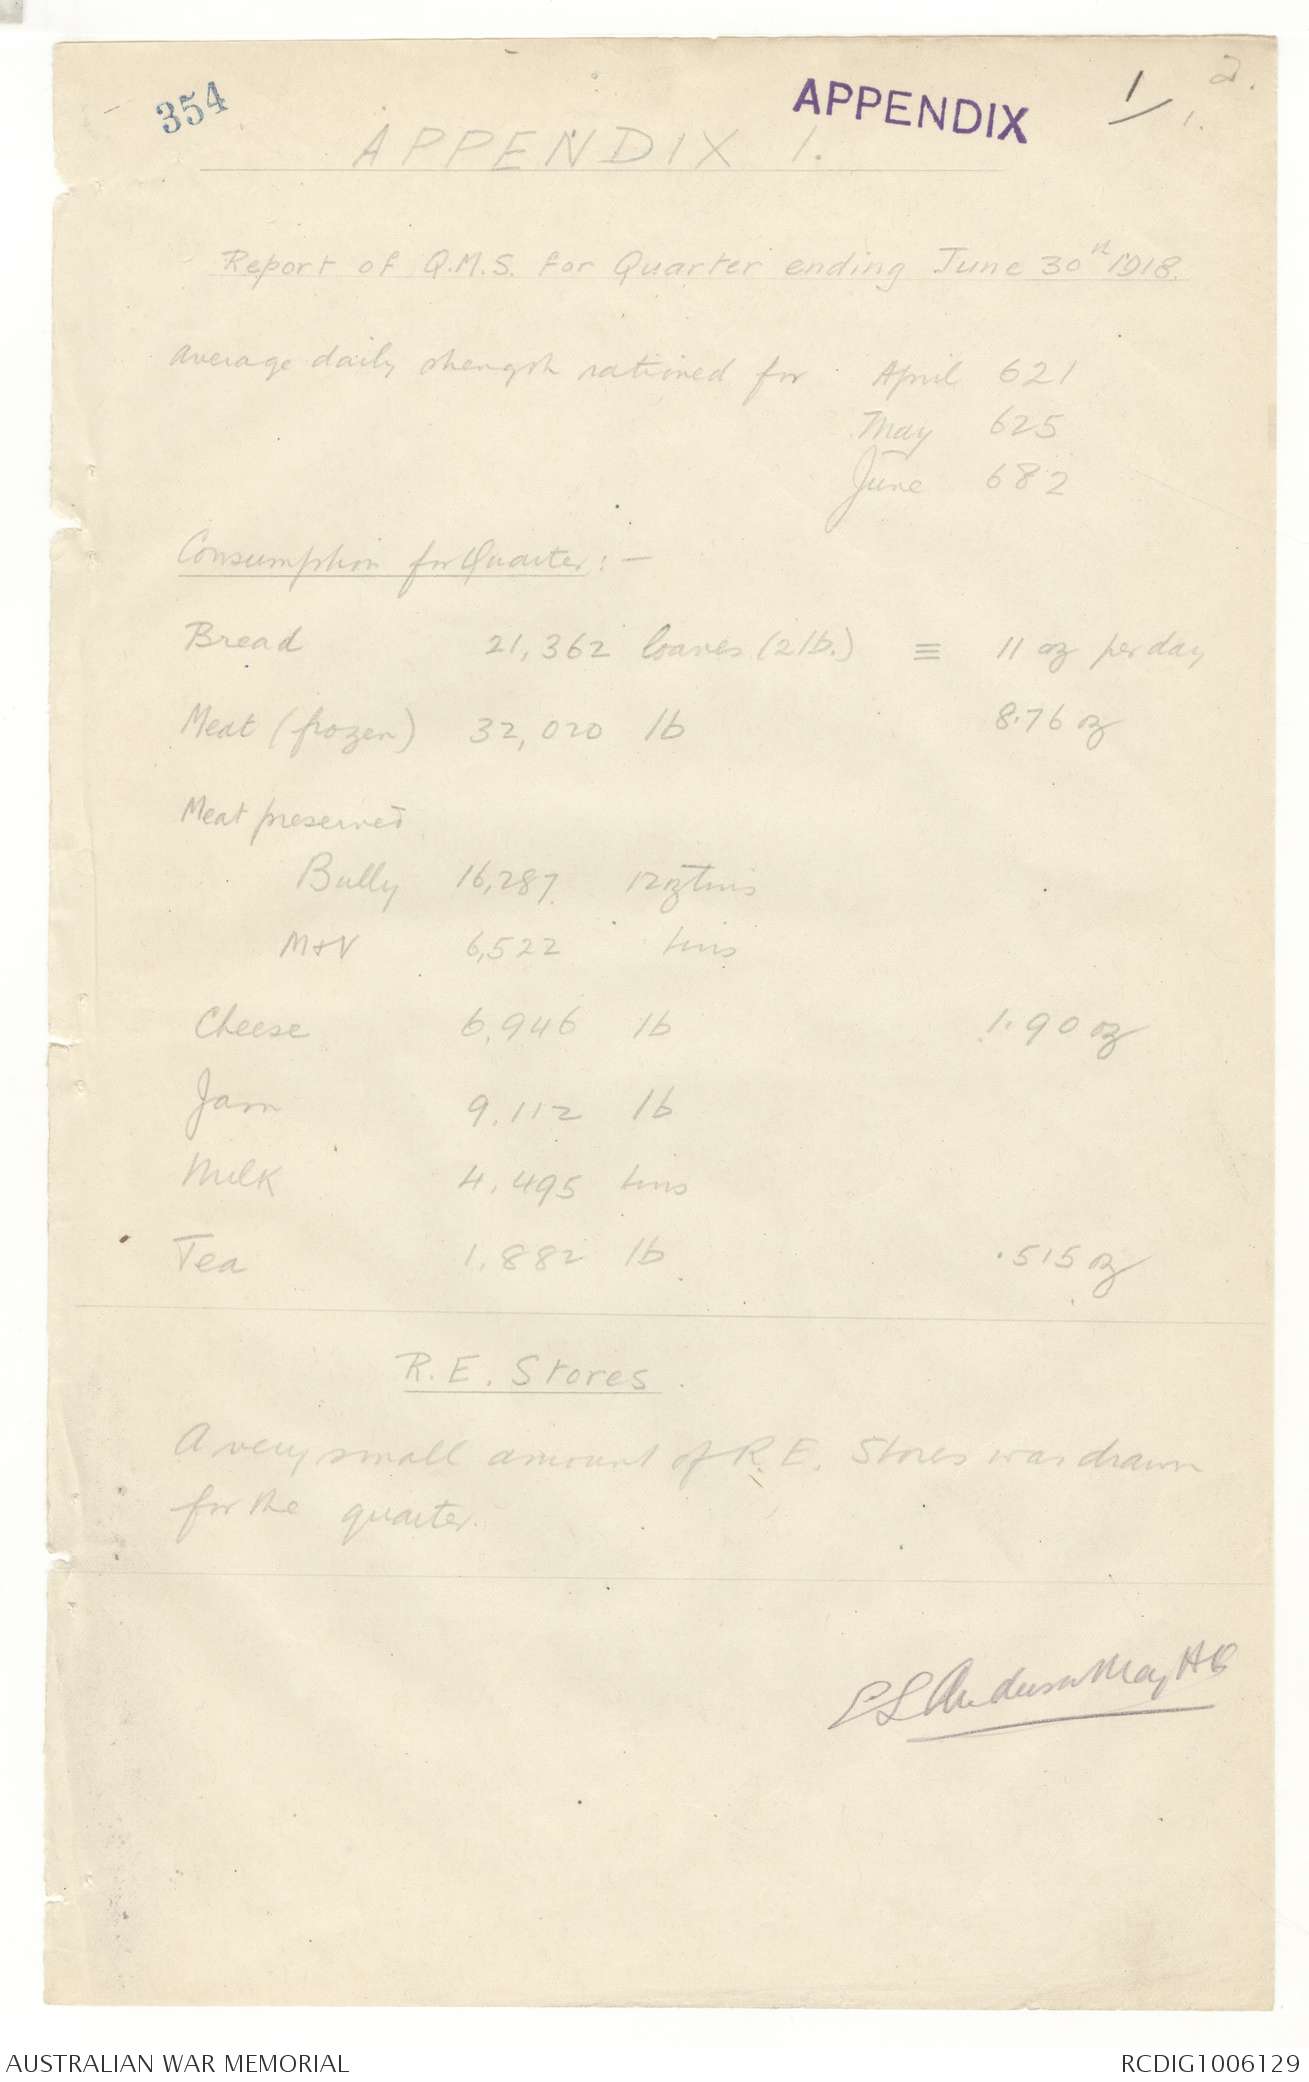 354
APPENDIX
1
2.
1.
APPENDIX 1.
Report of Q.M.S. for Quarter ending June 30th 1918.
Average daily strength rationed for April 621
May 625
June 682
Consumption for Quarter:-
Bread 21,362 loaves (2lb.) ≡ 11 oz per day
Meat (frozen) 32,020 lb 8.76 oz
Meat preserved
Bully 16,287 12oz tins
M+V 6,522 tins
Cheese 6,946 lb 1.90 oz
Jam 9,112 lb
Milk 4,495 tins
Tea 1,882 lb .515 oz
R.E. Stores.
A very small amount of R.E. Stores was drawn
for the quarter.
Anderson Maj
AUSTRALIAN WAR MEMORIAL
RCDIG1006129